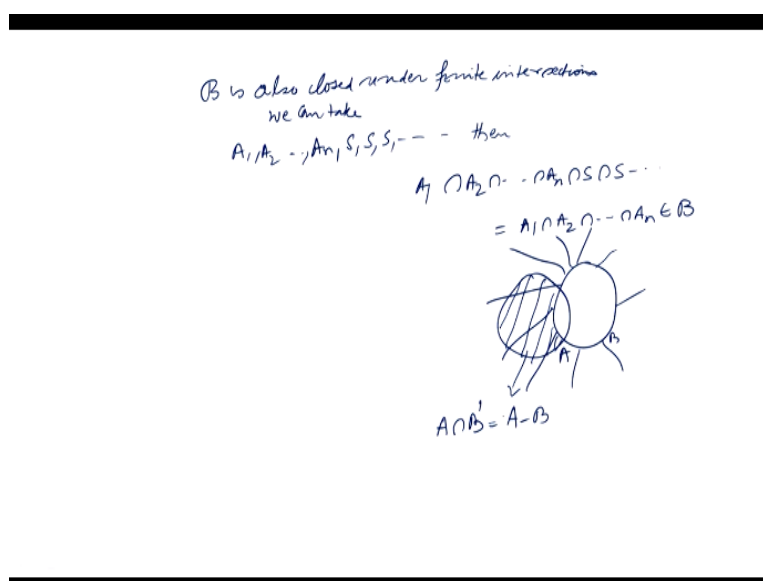 B is also closed under finite intersections
we can take
A₁, A₂ ..., An, S, S, S, --- - then
A₁ ∩ A₂ ∩ - . ∩ An ∩ S ∩ S - ..
= A₁ ∩ A₂ ∩ -- ∩ An ∈ B
A B
A ∩ B' = A - B